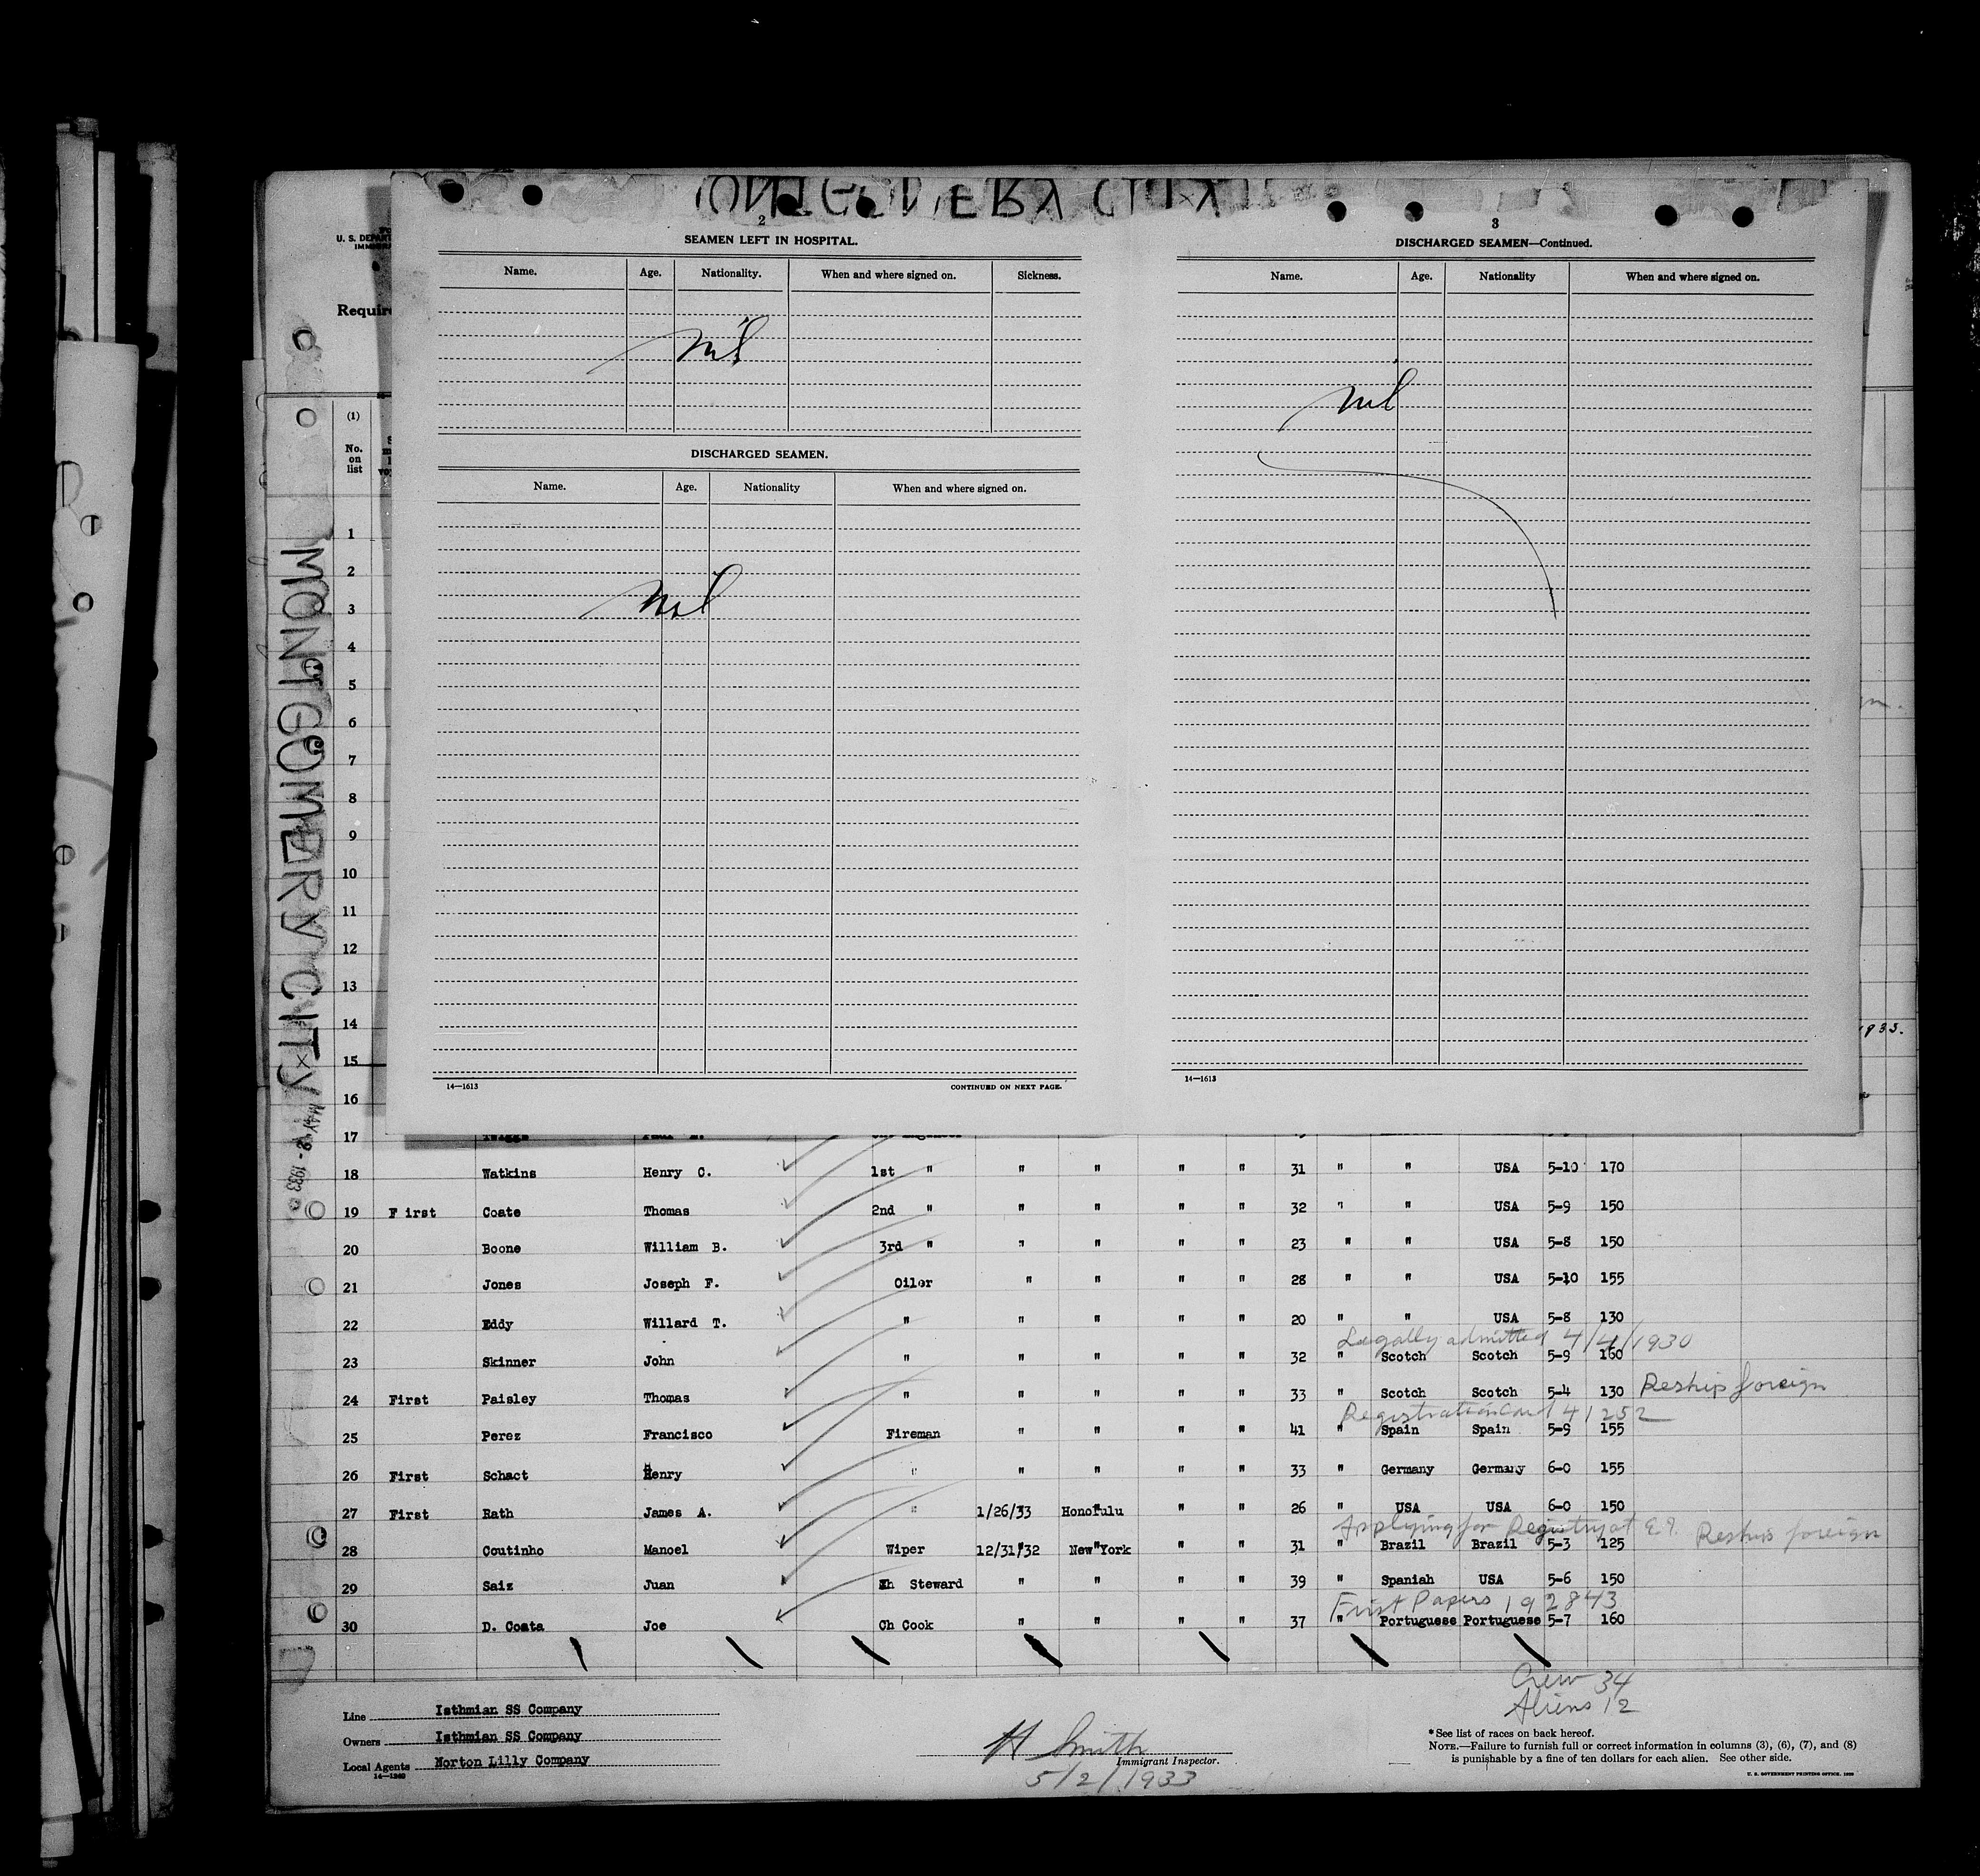 MONTGOMERY CITY
U. S. DEPAR
Requir
2
SEAMEN LEFT IN HOSPITAL.
Name. Age. Nationality. When and where signed on. Sickness.
nil
DISCHARGED SEAMEN.
Name. Age. Nationality When and where signed on.
nil
14—1613 CONTINUED ON NEXT PAGE.
3
DISCHARGED SEAMEN—Continued.
Name. Age. Nationality When and where signed on.
nil
14—1613
(1)
No.
on
list
1
2
3
4
5
6
7
8
9
10
11
12
13
14
15
16
MONTGOMERY CITY MAY 2 - 1933
17
18 Watkins Henry C. 1st " " " " " 31 " " USA 5-10 170
19 First Coate Thomas 2nd " " " " " 32 " " USA 5-9 150
20 Boone William B. 3rd " " " " " 23 " " USA 5-8 150
21 Jones Joseph F. Oiler " " " " 28 " " USA 5-10 155
22 Eddy Willard T. " " " " " 20 " " USA 5-8 130
Legally admitted 4/4/1930
23 Skinner John " " " " " 32 " Scotch Scotch 5-9 160
24 First Paisley Thomas " " " " " 33 " Scotch Scotch 5-4 130 Reship foreign
Registration Card 41252
25 Perez Francisco Fireman " " " " 41 " Spain Spain 5-9 155
26 First Schact Henry " " " " " 33 " Germany Germany 6-0 155
27 First Rath James A. " 1/26/33 Honolulu " " 26 " USA USA 6-0 150
Applying for Registry at E.I. Reship foreign
28 Coutinho Manoel Wiper 12/31/32 New York " " 31 " Brazil Brazil 5-3 125
29 Saiz Juan Ch Steward " " " " 39 " Spanish USA 5-6 150
First Papers 192843
30 D. Costa Joe Ch Cook " " " " 37 " Portuguese Portuguese 5-7 160
Crew 34
Aliens 12
Line Isthmian SS Company
Owners Isthmian SS Company
Local Agents Norton Lilly Company
14—1240
H Smith
Immigrant Inspector.
5/2/1933
*See list of races on back hereof.
NOTE.—Failure to furnish full or correct information in columns (3), (6), (7), and (8)
is punishable by a fine of ten dollars for each alien. See other side.
U. S. GOVERNMENT PRINTING OFFICE.